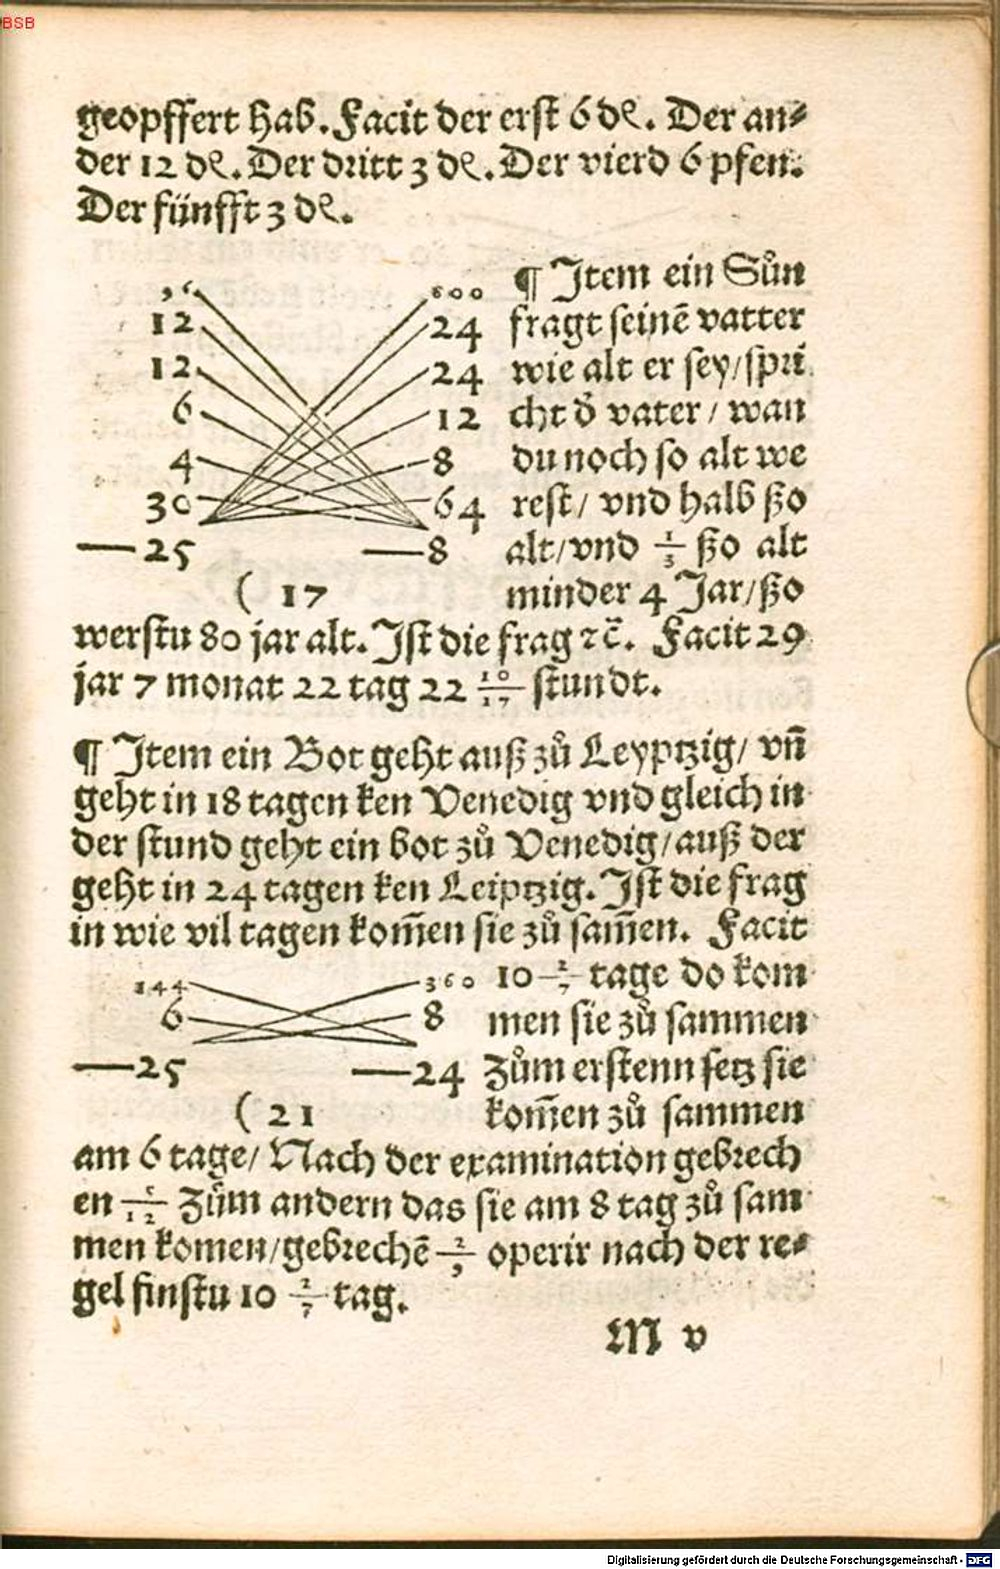 BSB
geopffert hab. Facit der erst 6 d₰. Der an⸗
der 12 d₰. Der dritt 3 d₰. Der vierd 6 pfen.
Der fünfft 3 d₰.
600
12 24
12 24
6 12
4 8
30 64
— 25 — 8
( 17
¶ Item ein Sůn
fragt seinē vatter
wie alt er sey/spri
cht d̕ vater / wan
du noch so alt we
rest/ vnd halb ßo
alt/vnd 1/3 ßo alt
minder 4 Jar/ßo
werstu 80 jar alt. Ist die frag ⁊c̄. Facit 29
jar 7 monat 22 tag 22 10/17 stundt.
¶ Item ein Bot geht auß zů Leyptzig/ vn̄
geht in 18 tagen ken Venedig vnd gleich in
der stund geht ein bot zů Venedig/auß der
geht in 24 tagen ken Leiptzig. Ist die frag
in wie vil tagen kom̄en sie zů sam̄en. Facit
144 360
6 8
— 25 — 24
( 21
10 2/7 tage do kom
men sie zů sammen
Zům erstenn setz sie
kom̄en zů sammen
am 6 tage/ Nach der examination gebrech
en 5/12 Zům andern das sie am 8 tag zů sam
men komen/gebrechē 2/9 operir nach der re⸗
gel finstu 10 2/7 tag.
M v
Digitalisierung gefördert durch die Deutsche Forschungsgemeinschaft - DFG